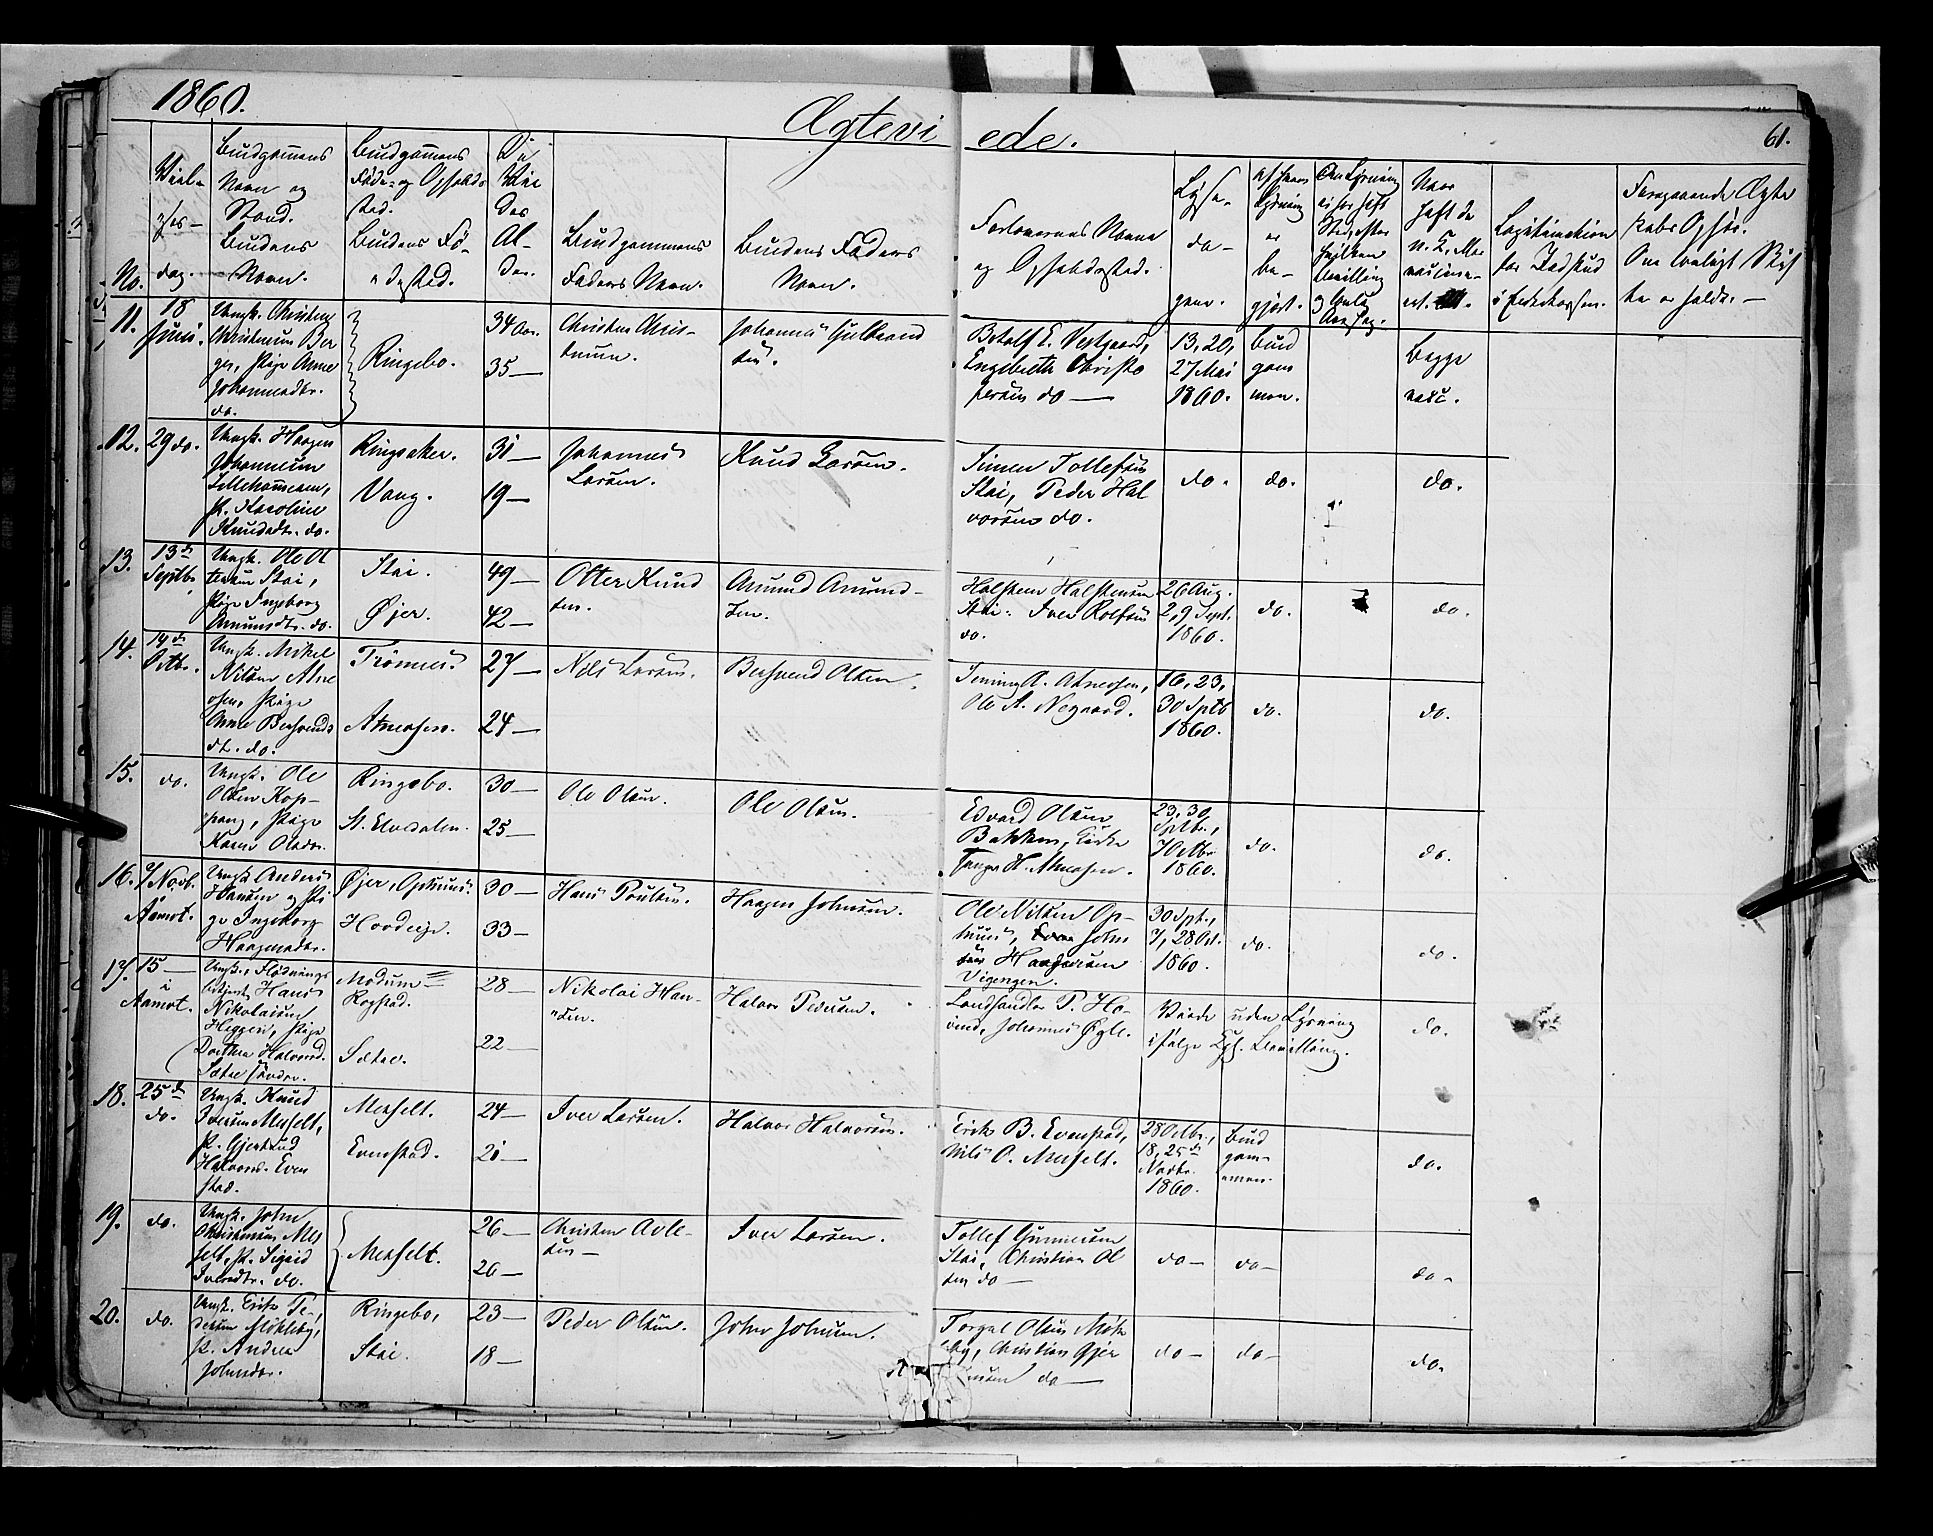 1860.
Ægteviede.
61.
No.
Viel-
ses-
dag.
Brudgomens
Navn og
Stand.
Brudens
Navn.
Brudgomens
Føde- og Opholds
sted.
Brudens Fø-
dested.
Di
Viedes
Al-
der.
Brudgommens
Faders Navn.
Brudens Faders
Navn.
Forlovernes Navne
og Opholdssted.
Lysn.
da-
gene.
af hvem
Lysning
er
be-
gjært.
Naar
haft de
n. K. el.
vaccine-
ret.
Legitimation
for Indskud
i Enkekassen.
Foregaaende Ægte
skabs Ophør.
Om lovligt Skif
te er holdt. —
11. 18 Juni.
Ungk. Christen
Christensen Ber
ger, Pige Anne
Johannesdtr.
do.
Ringebo.
34 Aar.
35 —
Christen Chris-
tensen.
Johannes Gulbrand
sen.
Botolf E. Vestgaard,
Engebreth Christo
fersen do —
13, 20,
27 Mai
1860.
Brud
gom
men.
Begge
vacc.
12. 29 do.
Ungk. Haagen
Johannesen
Lillehammeren,
P. Karoline
Knudsdtr. do.
Ringsaker.
Vang.
31 —
19 —
Johannes
Larsen.
Knud Larsen.
Simen Tollefsen
Stai, Peder Hal
vorsen do.
do.
do.
do.
13. 13de
Septbr.
Ungk. Ole O
tersen Stai,
Pige Ingeborg
Amundsdtr. do.
Stai.
Øjer.
49 —
42 —
Otter Knud
sen.
Amund Amund-
sen.
Halsten Halstensen
Stai. Iver Rolfsen
do.
26 Aug.
2, 9 Sept.
1860.
do.
do.
14. 14de
Octbr.
Ungk. Mikel
Nilsen Atne
osen, Pige
Anne Bersvends
dt. do.
Trönnes
Atneosen.
27 —
24 —
Nils Larsen.
Bersvend Olsen.
Iemming A. Atneosen,
Ole A. Negaard.
16, 23,
30 Sptb
1860.
do.
do.
15. do.
Ungk. Ole
Olsen Kop-
pang, Pige
Karen Olsdr.
Ringebo.
St. Elvedalen.
30 —
25 —
Ole Olsen.
Ole Olsen.
Edvard Olsen
Bakken, Kirke
sanger H. Atneosen.
23, 30
Sptbr.,
7 Octbr.
1860.
do.
do.
16. 9/ Novb.
Aamot.
Ungk Anders
Hansen og Pi
ge Ingeborg
Haagensdtr.
Øjer, Ophuus.
Hovdeije.
30 —
33 —
Hans Poulsen.
Haagen Johnsen.
Ole Nilsen Op-
huus, John
Haagensen
Vigengen.
30 Spt.,
7, 28 Oct.
1860.
do.
do.
17. 15 —
i
Aamot.
Ungk., Flødnings
betjent Hans
Nikolaisen
Heggen, Pige
Dorthea Halvorsd.
Sætre söndr.
Modum
Rogstad.
Sætre.
28 —
22 —
Nikolai Han-
sen.
Halvor Pedersen.
Landhandler P. Ho-
vind, Johannes Øgle.
Viede uden Lysning
ifølge Kgl. Bevilling.
do.
18. 25de
do.
Ungk. Knud
Iversen Messelt,
P. Gjertrud
Halvorsd. Even
stad.
Messelt.
Evenstad.
24 —
21 —
Iver Larsen.
Halvor Halvorsen.
Erik B. Evenstad,
Nils O. Messelt.
28 Octbr.,
18, 25de
Novbr.
1860.
Brud
gom-
men.
do.
19. do.
Ungk. John
Christensen Mes
selt, P. Sigrid
Iversdtr. do.
Messelt.
26 —
20 —
Christen Avle-
sen —
Iver Larsen.
Tollef Gunnersen
Stai, Christian Ol
sen do —
do —
do —
do —
20. do.
Ungk. Erik Pe-
dersen Møkleby,
P. Andrea
Johnsdtr.
Ringebo,
Stai.
23 —
18 —
Peder Olsen.
John Johnsen.
Torgal Olsen Møk
leby, Christian Gjer
do —
do —
do —
do.